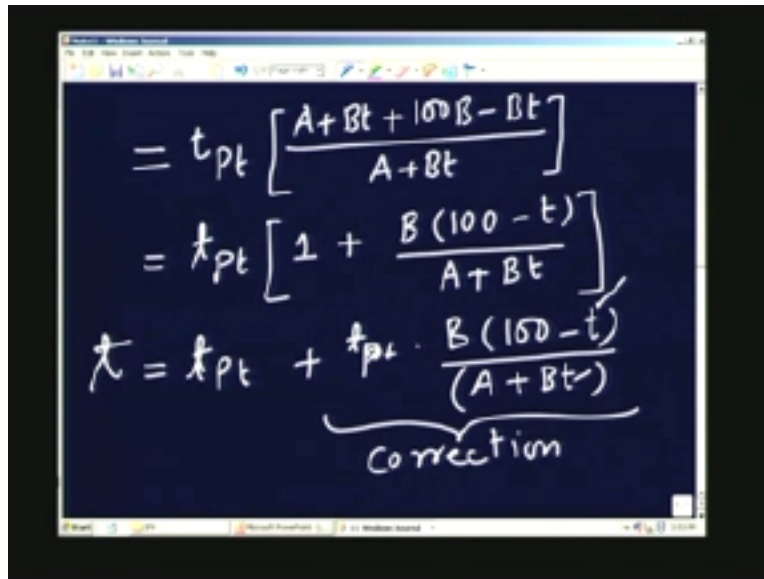 File Edit View Insert Actions Tools Help
= t_Pt [ (A + Bt + 100B - Bt) / (A + Bt) ]
= t_Pt [ 1 + B(100 - t) / (A + Bt) ]
t = t_Pt + t_Pt · B(100 - t) / (A + Bt)
correction